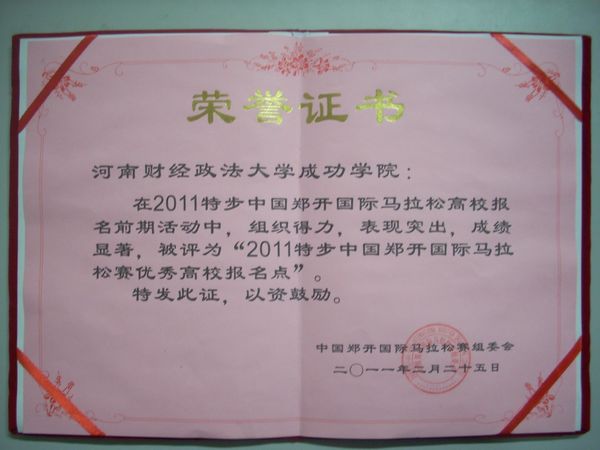 荣誉证书
河南财经政法大学成功学院：
在2011特步中国郑开国际马拉松高校报
名前期活动中，组织得力，表现突出，成绩
显著，被评为“2011特步中国郑开国际马拉
松赛优秀高校报名点”。
特发此证，以资鼓励。
中国郑开国际马拉松赛组委会
二〇一一年二月二十五日